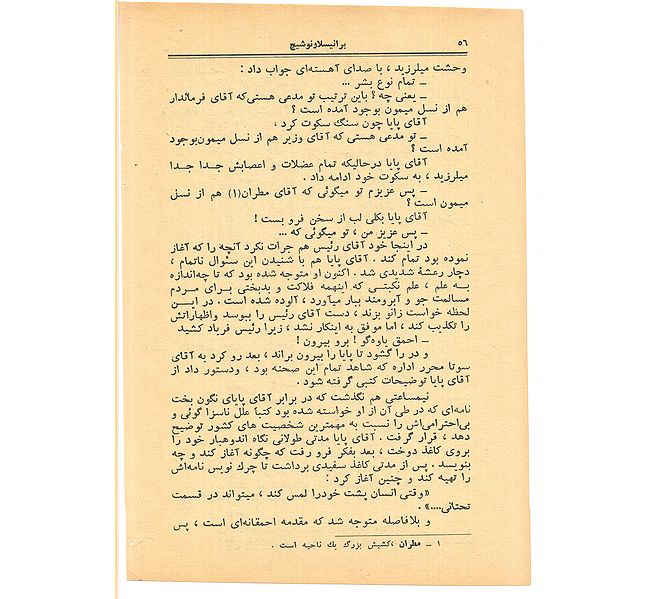 ۵۶
برانیسلاونوشیچ
وحشت میلرزید ، با صدای آهسته‌ای جواب داد :
ـ تمام نوع بشر ...
ـ یعنی چه ؟ باین ترتیب تو مدعی هستی‌که آقای فرماندار
هم از نسل میمون بوجود آمده است ؟
آقای پایا چون سنگ سکوت کرد ،
ـ تو مدعی هستی که آقای وزیر هم از نسل میمون‌بوجود
آمده است ؟
آقای پایا درحالیکه تمام عضلات و اعصابش جدا جدا
میلرزید ، به سکوت خود ادامه داد .
ـ پس عزیزم تو میگوئی که آقای مطران(۱) هم از نسل
میمون است ؟
آقای پایا بکلی لب از سخن فرو بست !
ـ پس عزیز من ، تو میگوئی که ...
در اینجا خود آقای رئیس هم جرات نکرد آنچه را که آغاز
نموده بود تمام کند . آقای پایا هم با شنیدن این سئوال ناتمام ،
دچار رعشهٔ شدیدی شد . اکنون او متوجه شده بود که تا چه‌اندازه
بـه علم ، علم نکبتـی که اینهمه فلاکت و بدبختی بـرای مـردم
مسالمت جو و آبرومند ببار میآورد ، آلوده شده است . در ایـن
لحظه خواست زانو بزند ، دست آقای رئیس را ببوسد واظهاراتش
را تکذیب کند ، اما موفق به اینکار نشد ، زیرا رئیس فریاد کشید
ـ احمق یاوه‌گو ! برو بیرون !
و در را گشود تا پایا را بیرون براند ، بعد رو کرد به آقای
سوتا محرر اداره که شاهد تمام این صحنه بود ، ودستور داد از
آقای پایا توضیحات کتبی گرفته شود .
نیمساعتی هم نگذشت که در برابر آقای پایای نگون بخت
نامه‌ای که در طی آن از او خواسته شده بود کتباً علل ناسزا گوئی و
بی‌احترامی‌اش را نسبت به مهمترین شخصیت های کشور توضیح
دهد ، قرار گرفت . آقای پایا مدتی طولانی نگاه اندوهبار خود را
بروی کاغذ دوخت ، بعد بفکر فرو رفت که چگونه آغاز کند و چه
بنویسد . پس از مدتی کاغذ سفیدی برداشت تا چرك نویس نامه‌اش
را تهیه کند و چنین آغاز کرد :
«وقتی انسان پشت خودرا لمس کند ، میتواند در قسمت
تحتانی....» .
و بلافاصله متوجه شد که مقدمه احمقانه‌ای است ، پس
۱ ـ مطران ،کشیش بزرگ یك ناحیه است .